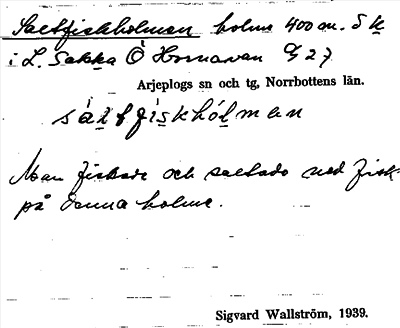 Saltfiskholmen holme 400 m. S k
i L. Sakka Ö Hornavan G 27
Arjeplogs sn och tg, Norrbottens län.
sáltfiskhólman
Man fiskade och saltade ned fisk
på denna holme.
Sigvard Wallström, 1939.